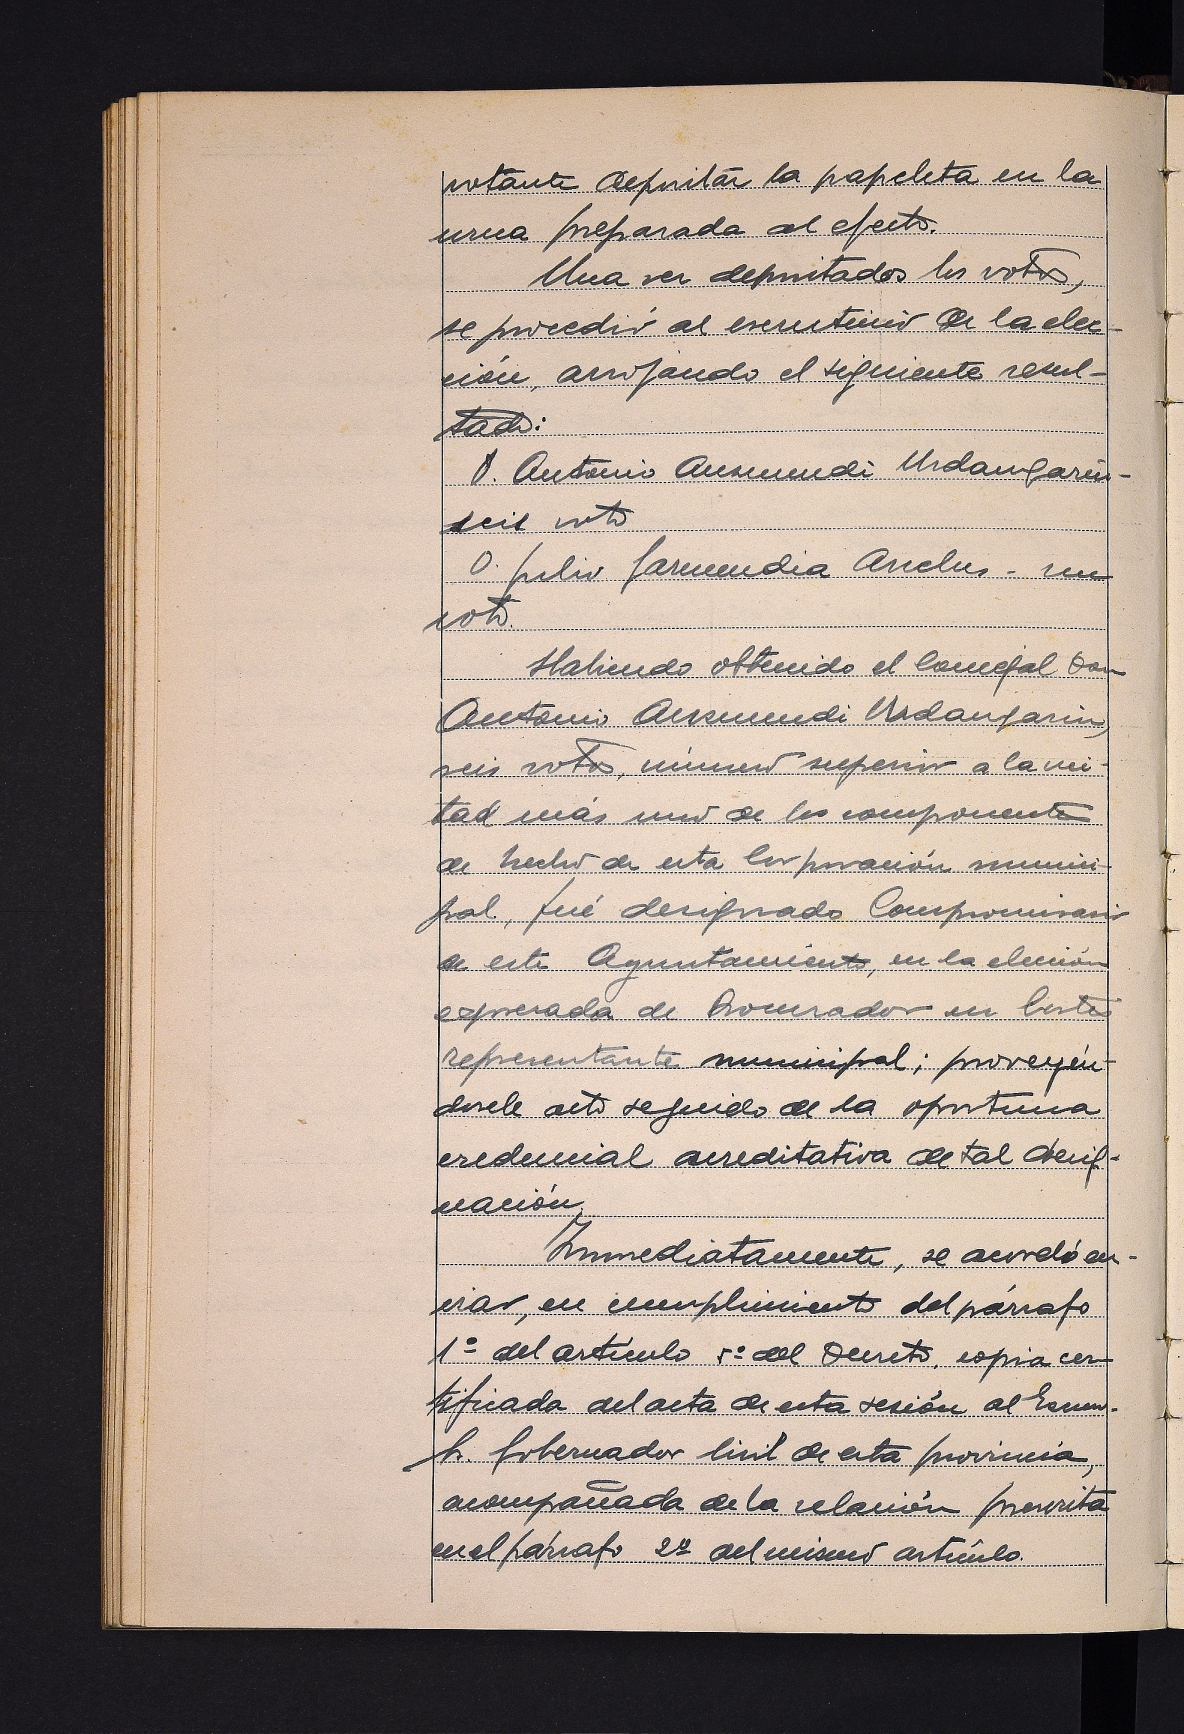 votante depositar la papeleta en la
urna preparada al efecto.
Una vez depositados los votos,
se procedió al escrutinio de la elec-
ción, arrojando el siguiente resul-
tado:
D. Antonio Auzmendi Urdangarin-
seis voto
D. Julio Garmendia Arrelus - un
voto.
Habiendo obtenido el Concejal Don
Antonio Auzmendi Urdangarin,
seis votos, número superior a la mi-
tad más uno de los componentes
de hecho de esta Corporación munici-
pal, fué designado Compromisario
de este Ayuntamiento, en la elección
expresada de Procurador en Cortes
representante municipal; proveyén-
dosele acto seguido de la oportuna
credencial acreditativa de tal desig-
nación.
Inmediatamente, se acordó en-
viar, en cumplimiento del párrafo
1º del artículo 5º del Decreto, copia cer-
tificada del acta de esta sesión al Excmo.
Sr. Gobernador Civil de esta provincia,
acompañada de la relación prescrita
en el párrafo 2º del mismo artículo.